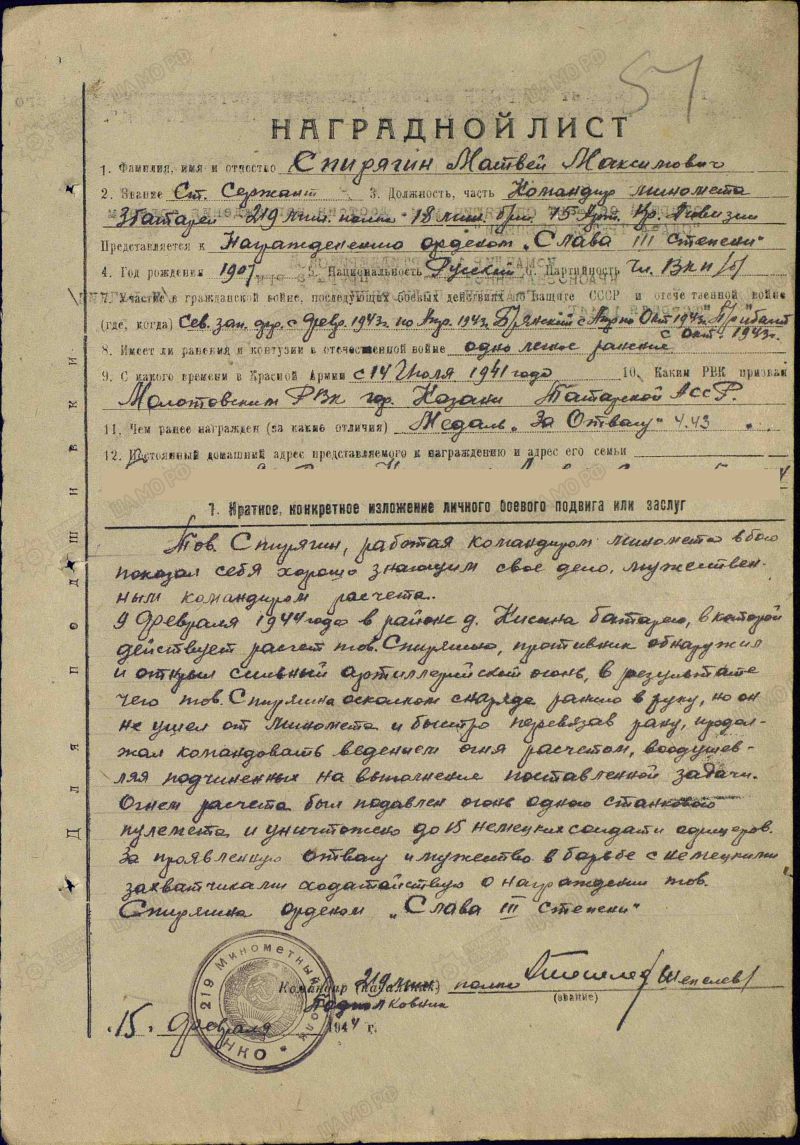 51
НАГРАДНОЙ ЛИСТ
1. Фамилия, имя и отчество Спирягин Матвей Максимович
2. Звание Ст. Сержант 3. Должность, часть Командир миномета
3 батареи 219 мин. полка 18 мин. бриг. 15 Арт. Кр. Дивизии
Представляется к Награждению орденом „Слава III степени"
4. Год рождения 1907 5. Национальность Русский 6. Партийность Чл. ВКП/б/
7. Участие в гражданской войне, последующих боевых действиях по защите СССР и отечественной войне
(где, когда) Сев. зап. фр. с февр. 1943г. по Апр. 1943г. Брянский с Апр по Окт 1943г. "Прибалт"
с окт. 1943г.
8. Имеет ли ранения и контузии в отечественной войне одно легкое ранение
9. С какого времени в Красной Армии с 14 Июля 1941 года 10. Каким РВК призван
Молотовским РВК гор. Казани Татарской АССР.
11. Чем ранее награжден (за какие отличия) Медаль „За Отвагу" 4.43
12. Постоянный домашний адрес представляемого к награждению и адрес его семьи
1. Краткое, конкретное изложение личного боевого подвига или заслуг
Тов. Спирягин, работая командиром миномета в бою
показал себя хорошо знающим свое дело, мужествен-
ным командиром расчета.
9 февраля 1944 года в районе д. батарею, в которой
действует расчет тов. Спирягина, противник обнаружил
и открыл сильный артиллерийский огонь, в результате
чего тов. Спирягина осколком снаряда ранило в руку, но он
не ушел от миномета и быстро перевязав рану, продол-
жал командовать ведением огня расчетом, воодушев-
ляя подчиненных на выполнение поставленной задачи.
Огнем расчета был подавлен огонь одного станкового
пулемета и уничтожено до 15 немецких солдат и офицеров.
За проявленную отвагу и мужество в борьбе с немецкими
захватчиками ходатайствую о награждении тов.
Спирягина орденом „Слава III степени"
Командир (начальник) 219 мин. полка /Шепелев/
Подполковник (звание)
15. февраля 1944 г.
219 Минометный полк * НКО *
Для подшивки
ЦАМО РФ